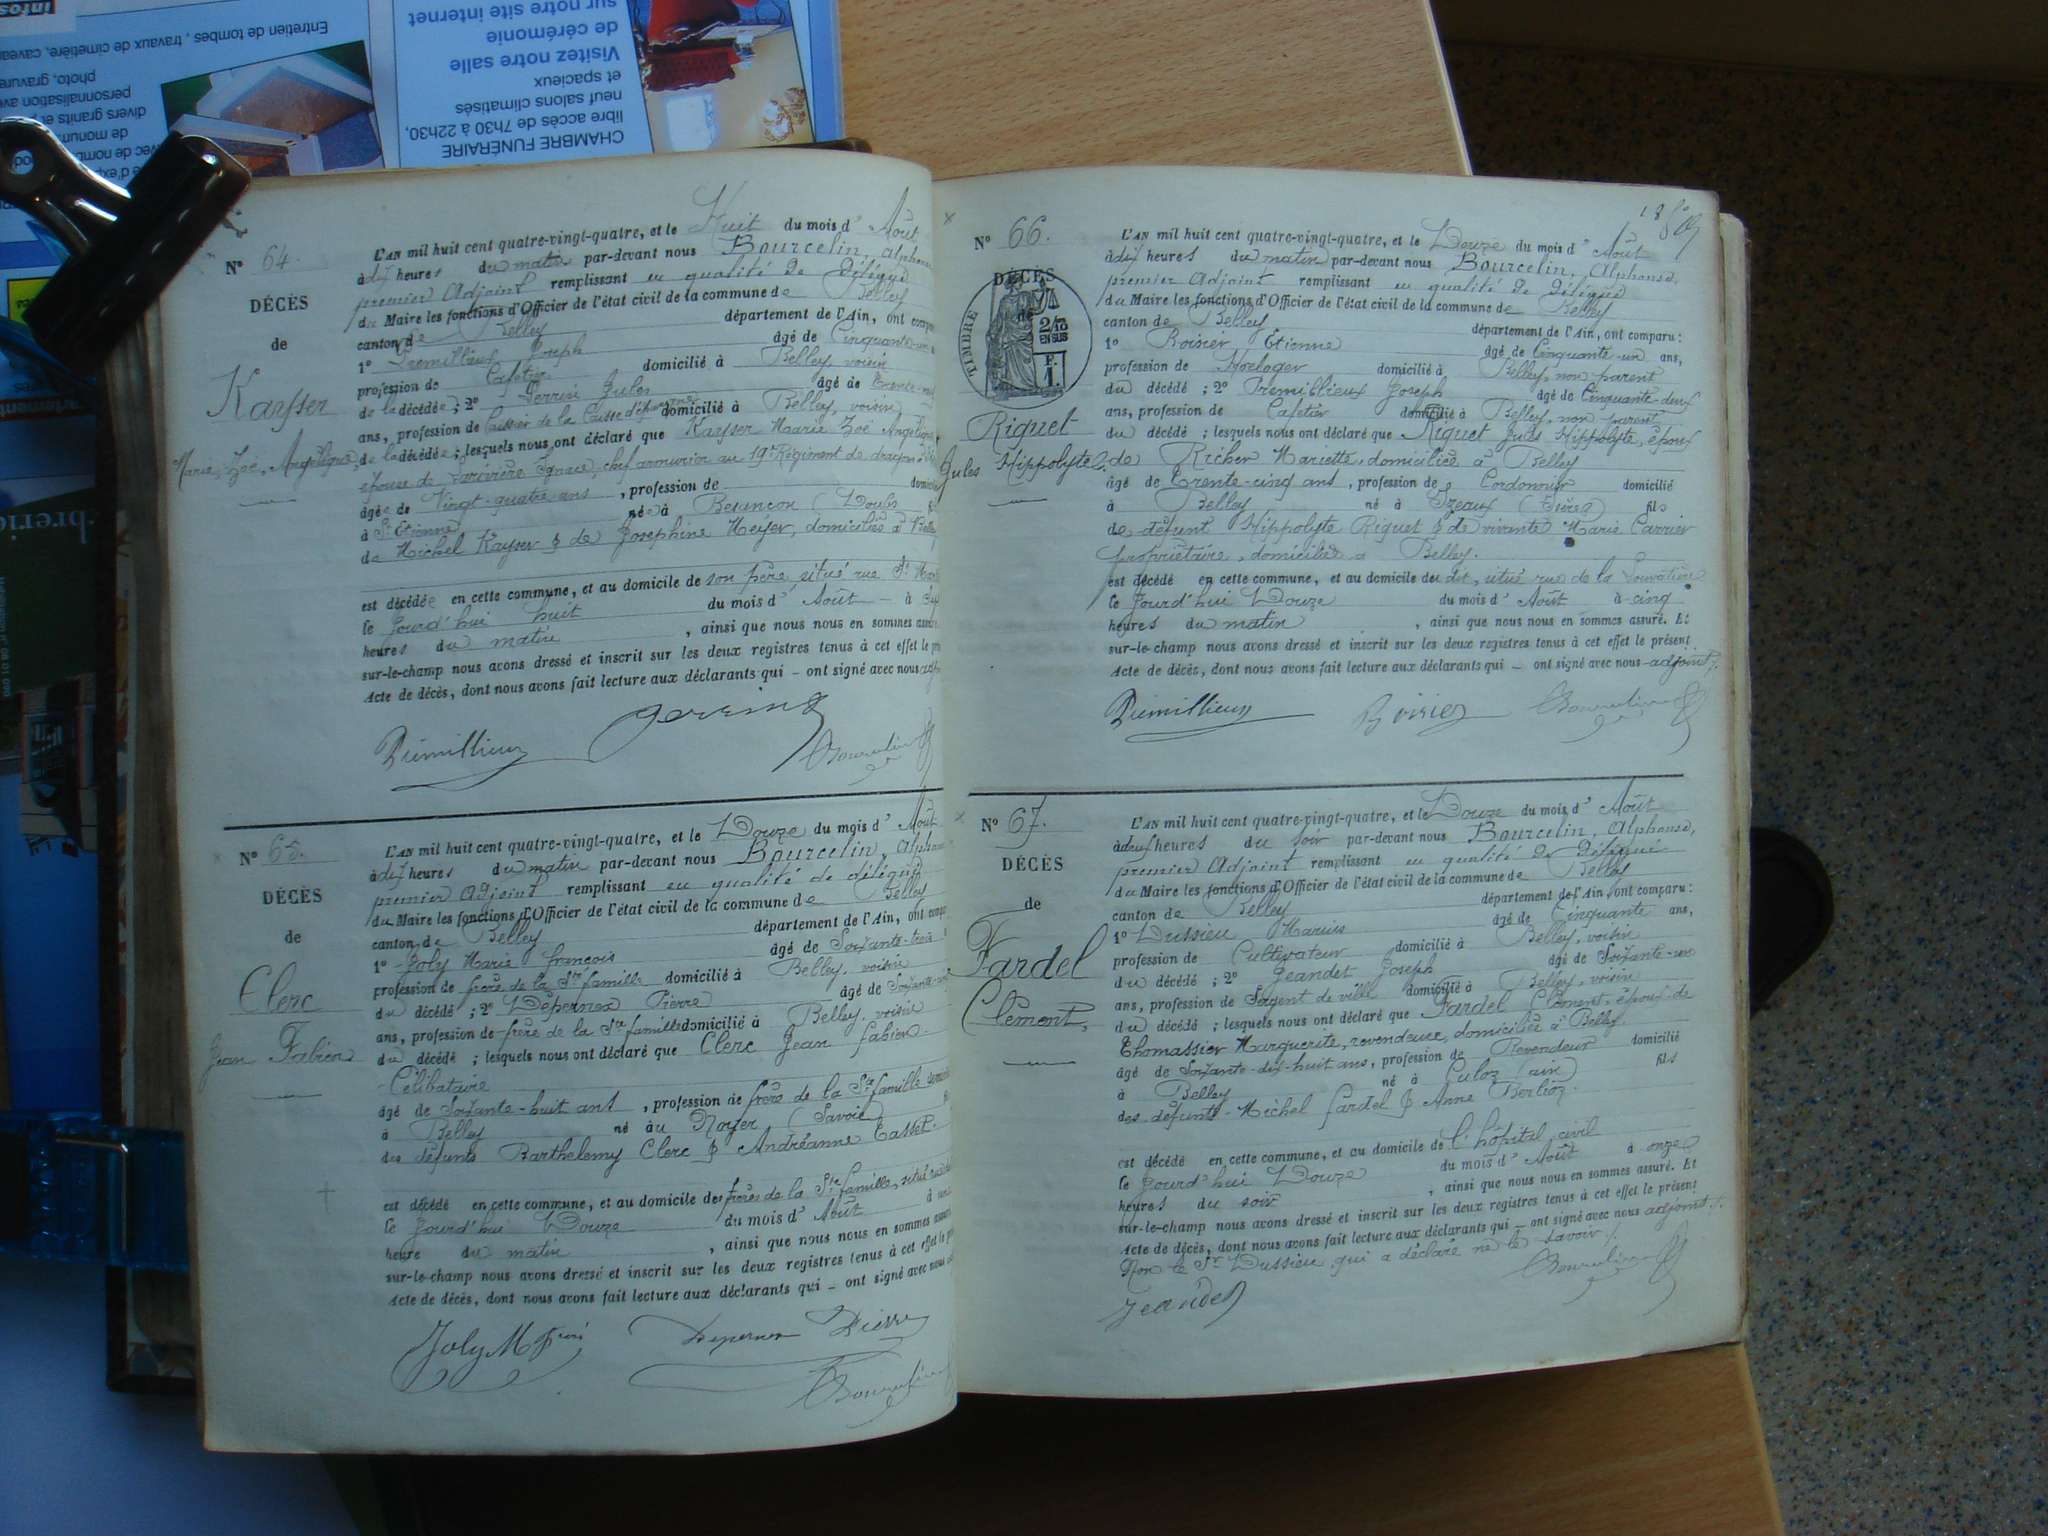 infos
Entretien de tombes, travaux de cimetière, cavea
photo, gravure
personnalisation ave
divers granits et p
de monum
avec de nomb
d'exp
sur notre site internet
de cérémonie
Visitez notre salle
et spacieux
neuf salons climatisés
libre accès de 7h30 à 22h30,
CHAMBRE FUNÉRAIRE
N° 64.
DÉCÈS
de
Kayser
Marie, Zoë, Angélique
L'AN mil huit cent quatre-vingt-quatre, et le Huit du mois d' Août
à dix heures du matin par-devant nous Bourcelin, Alphonse
premier Adjoint remplissant en qualité de Délégué
du Maire les fonctions d'Officier de l'état civil de la commune de Belley
canton de Belley département de l'Ain, ont compa
1° Premillieux Joseph âgé de Cinquante-un
profession de Cafetier domicilié à Belley, voisin
de la décédée ; 2° Perrin Jules âgé de trente-neuf
ans, profession de Caissier de la Caisse d'épargne domicilié à Belley, voisin
de la décédée ; lesquels nous ont déclaré que Kayser Marie Zoë Angélique
épouse de Larivière Ignace, chef armurier au 19e Régiment de dragons
âgée de Vingt-quatre ans, profession de domicil
à St Etienne née à Besançon (Doubs
de Michel Kayser & de Josephine Meyer, domiciliés à Belley
est décédée en cette commune, et au domicile de son père, situé rue St
le jourd'hui huit du mois d' Août à
heures du matin, ainsi que nous nous en sommes assuré
sur-le-champ nous avons dressé et inscrit sur les deux registres tenus à cet effet le pr
Acte de décès, dont nous avons fait lecture aux déclarants qui – ont signé avec nous
Prémillieux
Bourcelin
N° 65.
DÉCÈS
de
Clerc
Jean Fabien
L'AN mil huit cent quatre-vingt-quatre, et le Douze du mois d' Août
à dix heures du matin par-devant nous Bourcelin, Alphon
premier Adjoint remplissant en qualité de délégué
du Maire les fonctions d'Officier de l'état civil de la commune de Belley
canton de Belley département de l'Ain, ont compa
1° Joly Marie François âgé de Soixante-trois
profession de frère de la Ste famille domicilié à Belley, voisin
du décédé ; 2° Depernex Pierre âgé de Soixante
ans, profession de frère de la Ste famille domicilié à Belley, voisin
du décédé ; lesquels nous ont déclaré que Clerc Jean Fabien
Célibataire
âgé de Soixante-huit ans, profession de frère de la Ste famille
à Belley né au Noyer (Savoie)
des défunts Barthelemy Clerc & Andréanne Casset.
est décédé en cette commune, et au domicile des frères de la Ste famille, situé
le jourd'hui Douze du mois d' Août à une
heure du matin, ainsi que nous nous en sommes assuré
sur-le-champ nous avons dressé et inscrit sur les deux registres tenus à cet effet le
Acte de décès, dont nous avons fait lecture aux déclarants qui – ont signé avec nous
Joly M fçois
Depernex Pierre
Bourcelin
N° 66.
DÉCÈS
de
TIMBRE
2/10
EN SUS
F.
1.
Riguet
Jules Hippolyte
L'AN mil huit cent quatre-vingt-quatre, et le Douze du mois d' Août
à dix heures du matin par-devant nous Bourcelin, Alphonse,
premier Adjoint remplissant en qualité de Délégué
du Maire les fonctions d'Officier de l'état civil de la commune de Belley
canton de Belley département de l'Ain, ont comparu :
1° Roisier Etienne âgé de Cinquante-un ans,
profession de Horloger domicilié à Belley, non parent
du décédé ; 2° Premillieux Joseph âgé de Cinquante-deux
ans, profession de Cafetier domicilié à Belley, non parent
du décédé ; lesquels nous ont déclaré que Riguet Jules Hippolyte, époux
de Richer Mariette, domiciliée à Belley
âgé de Trente-cinq ans, profession de Cordonnier domicilié
à Belley né à Izeaux (Isère) fils
de défunt Hippolyte Riguet & de vivante Marie Carrier
propriétaire, domiciliée à Belley.
est décédé en cette commune, et au domicile du dit, situé rue de la Louvatière
le jourd'hui Douze du mois d' Août à cinq
heures du matin, ainsi que nous nous en sommes assuré. Et
sur-le-champ nous avons dressé et inscrit sur les deux registres tenus à cet effet le présent
Acte de décès, dont nous avons fait lecture aux déclarants qui – ont signé avec nous adjoint.
Prémillieux
Roisier
Bourcelin
N° 67.
DÉCÈS
de
Fardel
Clément,
L'AN mil huit cent quatre-vingt-quatre, et le Douze du mois d' Août
à deux heures du soir par-devant nous Bourcelin, Alphonse,
premier Adjoint remplissant en qualité de Délégué
du Maire les fonctions d'Officier de l'état civil de la commune de Belley
canton de Belley département de l'Ain, ont comparu :
1° Dussieu Marius âgé de Cinquante ans,
profession de Cultivateur domicilié à Belley, voisin
du décédé ; 2° Jeandet Joseph âgé de Soixante-un
ans, profession de Sergent de ville domicilié à Belley, voisin
du décédé ; lesquels nous ont déclaré que Fardel Clément, époux de
Thomassier Marguerite, revendeuse, domiciliée à Belley
âgé de Soixante-dix-huit ans, profession de Revendeur domicilié
à Belley né à Culoz (ain) fils
des défunts Michel Fardel & Anne Berlioz.
est décédé en cette commune, et au domicile de l'hôpital civil
le jourd'hui Douze du mois d' Août à onze
heures du soir, ainsi que nous nous en sommes assuré. Et
sur-le-champ nous avons dressé et inscrit sur les deux registres tenus à cet effet le présent
Acte de décès, dont nous avons fait lecture aux déclarants qui – ont signé avec nous adjoint.
Non le Sr Dussieu qui a déclaré ne le savoir.
Jeandet
Bourcelin